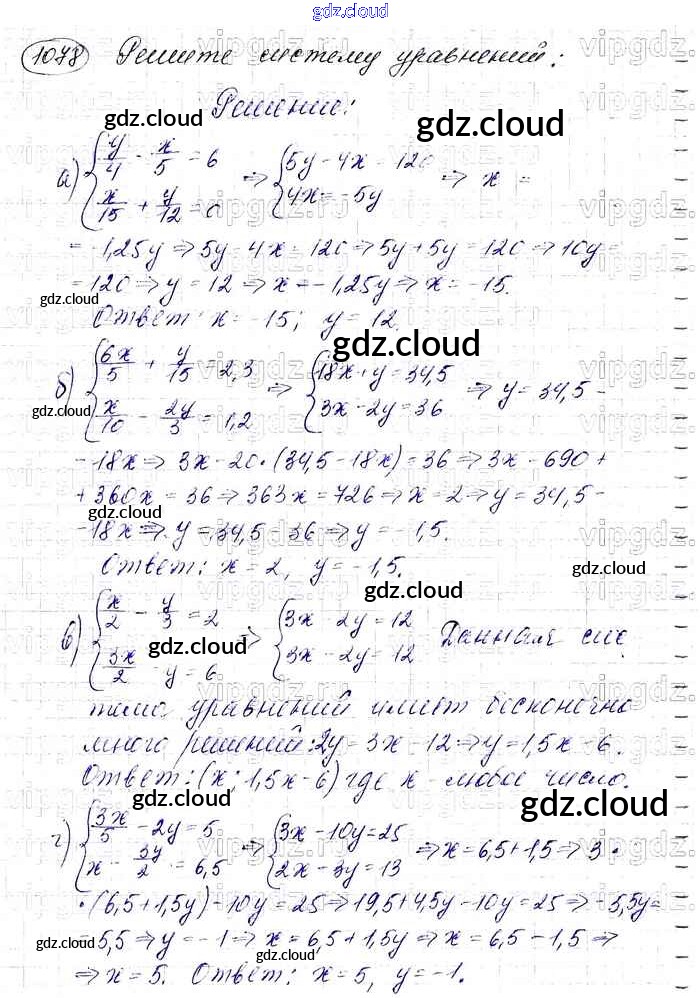 gdz.cloud
1078 Решите систему уравнений:
Решение:
а) { y/4 - x/5 = 6 ; x/15 + y/12 = 0 ⇒ { 5y - 4x = 120 ; 4x = -5y ⇒ x =
= -1,25y ⇒ 5y - 4x = 120 ⇒ 5y + 5y = 120 ⇒ 10y =
= 120 ⇒ y = 12 ⇒ x = -1,25y ⇒ x = -15.
Ответ: x = -15; y = 12.
б) { 6x/5 + y/15 = 2,3 ; x/10 - 2y/3 = 1,2 ⇒ { 18x + y = 34,5 ; 3x - 2y = 36 ⇒ y = 34,5 -
- 18x ⇒ 3x - 20·(34,5 - 18x) = 36 ⇒ 3x - 690 +
+ 360x = 36 ⇒ 363x = 726 ⇒ x = 2 ⇒ y = 34,5 -
- 18x ⇒ y = 34,5 - 36 ⇒ y = -1,5.
Ответ: x = 2, y = -1,5.
в) { x/2 - y/3 = 2 ; 3x/2 - y = 6 ⇒ { 3x - 2y = 12 ; 3x - 2y = 12 Данная сис
тема уравнений имеет бесконечно
много решений: 2y = 3x - 12 ⇒ y = 1,5x - 6.
Ответ: (x; 1,5x - 6) где x - любое число.
г) { 3x/5 - 2y = 5 ; x - 3y/2 = 6,5 ⇒ { 3x - 10y = 25 ; 2x - 3y = 13 ⇒ x = 6,5 + 1,5 ⇒ 3·
·(6,5 + 1,5y) - 10y = 25 ⇒ 19,5 + 4,5y - 10y = 25 ⇒ -5,5y =
= 5,5 ⇒ y = -1 ⇒ x = 6,5 + 1,5y ⇒ x = 6,5 - 1,5 ⇒
⇒ x = 5. Ответ: x = 5, y = -1.